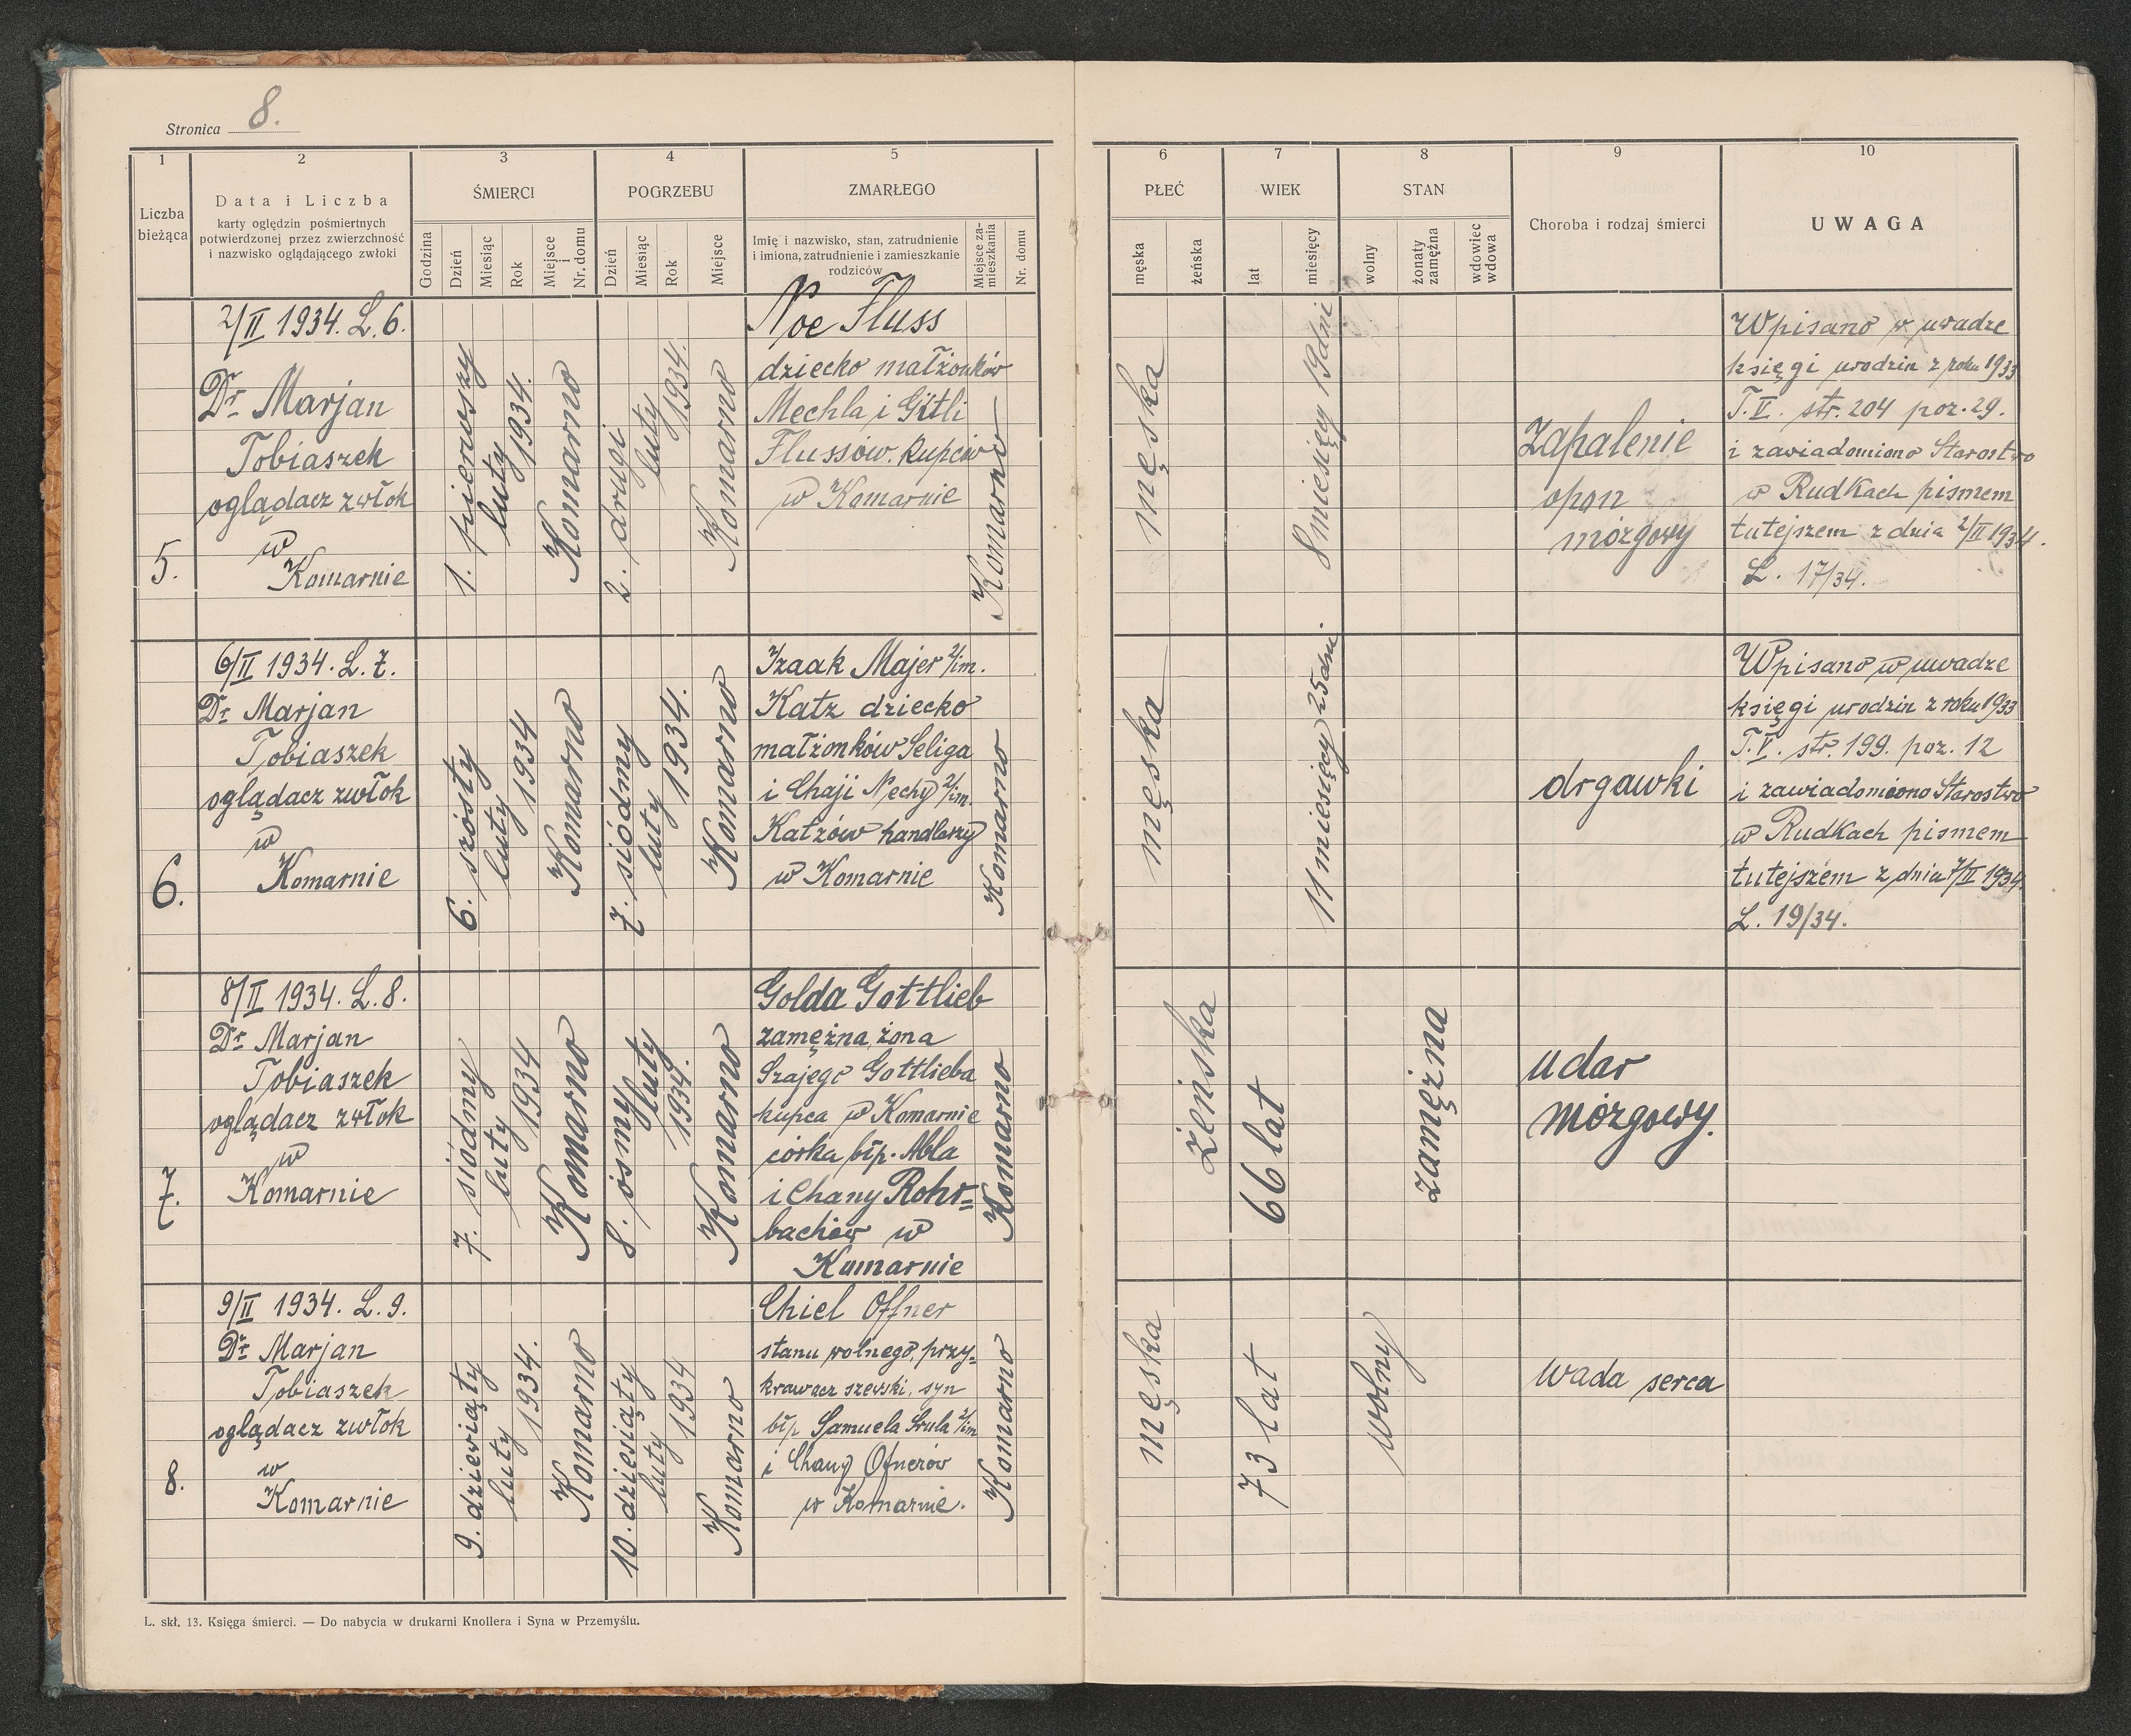 Stronica 8.
1 2 3 4 5 6 7 8 9 10
Liczba bieżąca
Data i Liczba
karty oględzin pośmiertnych
potwierdzonej przez zwierzchność
i nazwisko oglądającego zwłoki
ŚMIERCI
Godzina
Dzień
Miesiąc
Rok
Miejsce i Nr. domu
POGRZEBU
Dzień
Miesiąc
Rok
Miejsce
ZMARŁEGO
Imię i nazwisko, stan, zatrudnienie
i imiona, zatrudnienie i zamieszkanie
rodziców
Miejsce zamieszkania
Nr. domu
PŁEĆ
męska
żeńska
WIEK
lat
miesięcy
STAN
wolny
żonaty zamężna
wdowiec wdowa
Choroba i rodzaj śmierci
UWAGA
5.
2/II 1934. L. 6.
Dr Marjan
Tobiaszek
oglądacz zwłok
w
Komarnie
1. pierwszy
luty
1934.
Komarno
2. drugi
luty
1934.
Komarno
Noe Fluss
dziecko małżonków
Mechla i Gitli
Flussów. kupców
w Komarnie
Komarno
męska
8 miesięcy 19 dni
Zapalenie
opon
mózgowy
Wpisano w uwadze
księgi urodzin z roku 1933
T. V. str. 204 poz. 29.
i zawiadomiono Starostwo
w Rudkach pismem
tutejszem z dnia 2/II 1934.
L. 17/34.
6.
6/II 1934. L. 7.
Dr Marjan
Tobiaszek
oglądacz zwłok
w
Komarnie
6. szósty
luty
1934
Komarno
7. siódmy
luty
1934.
Komarno
Izaak Majer 2/im.
Katz dziecko
małżonków Seliga
i Chaji Nechy 2/im.
Katzów handlarzy
w Komarnie
Komarno
męska
11 miesięcy 25 dni.
drgawki
Wpisano w uwadze
księgi urodzin z roku 1933
T. V. str. 199. poz. 12
i zawiadomiono Starostwo
w Rudkach pismem
tutejszem z dnia 7/II 1934.
L. 19/34.
7.
8/II 1934. L. 8.
Dr Marjan
Tobiaszek
oglądacz zwłok
w
Komarnie
7. siódmy
luty
1934
Komarno
8. ósmy
luty
1934.
Komarno
Golda Gottlieb
zamężna, żona
Szajego Gottlieba
kupca w Komarnie
córka błp. Abla
i Chany Rohr=
bachów w
Komarnie
Komarno
żeńska
66 lat
zamężna
udar
mózgowy.
8.
9/II 1934. L. 9.
Dr Marjan
Tobiaszek
oglądacz zwłok
w
Komarnie
9. dziewiąty
luty
1934.
Komarno
10. dziesiąty
luty
1934
Komarno
Chiel Offner
stanu wolnego, przy=
krawacz szewski, syn
błp Samuela Srula 2/im
i Chany Ofnerów
w Komarnie.
Komarno
męska
73 lat
wolny
wada serca
L. skł. 13. Księga śmierci. — Do nabycia w drukarni Knollera i Syna w Przemyślu.